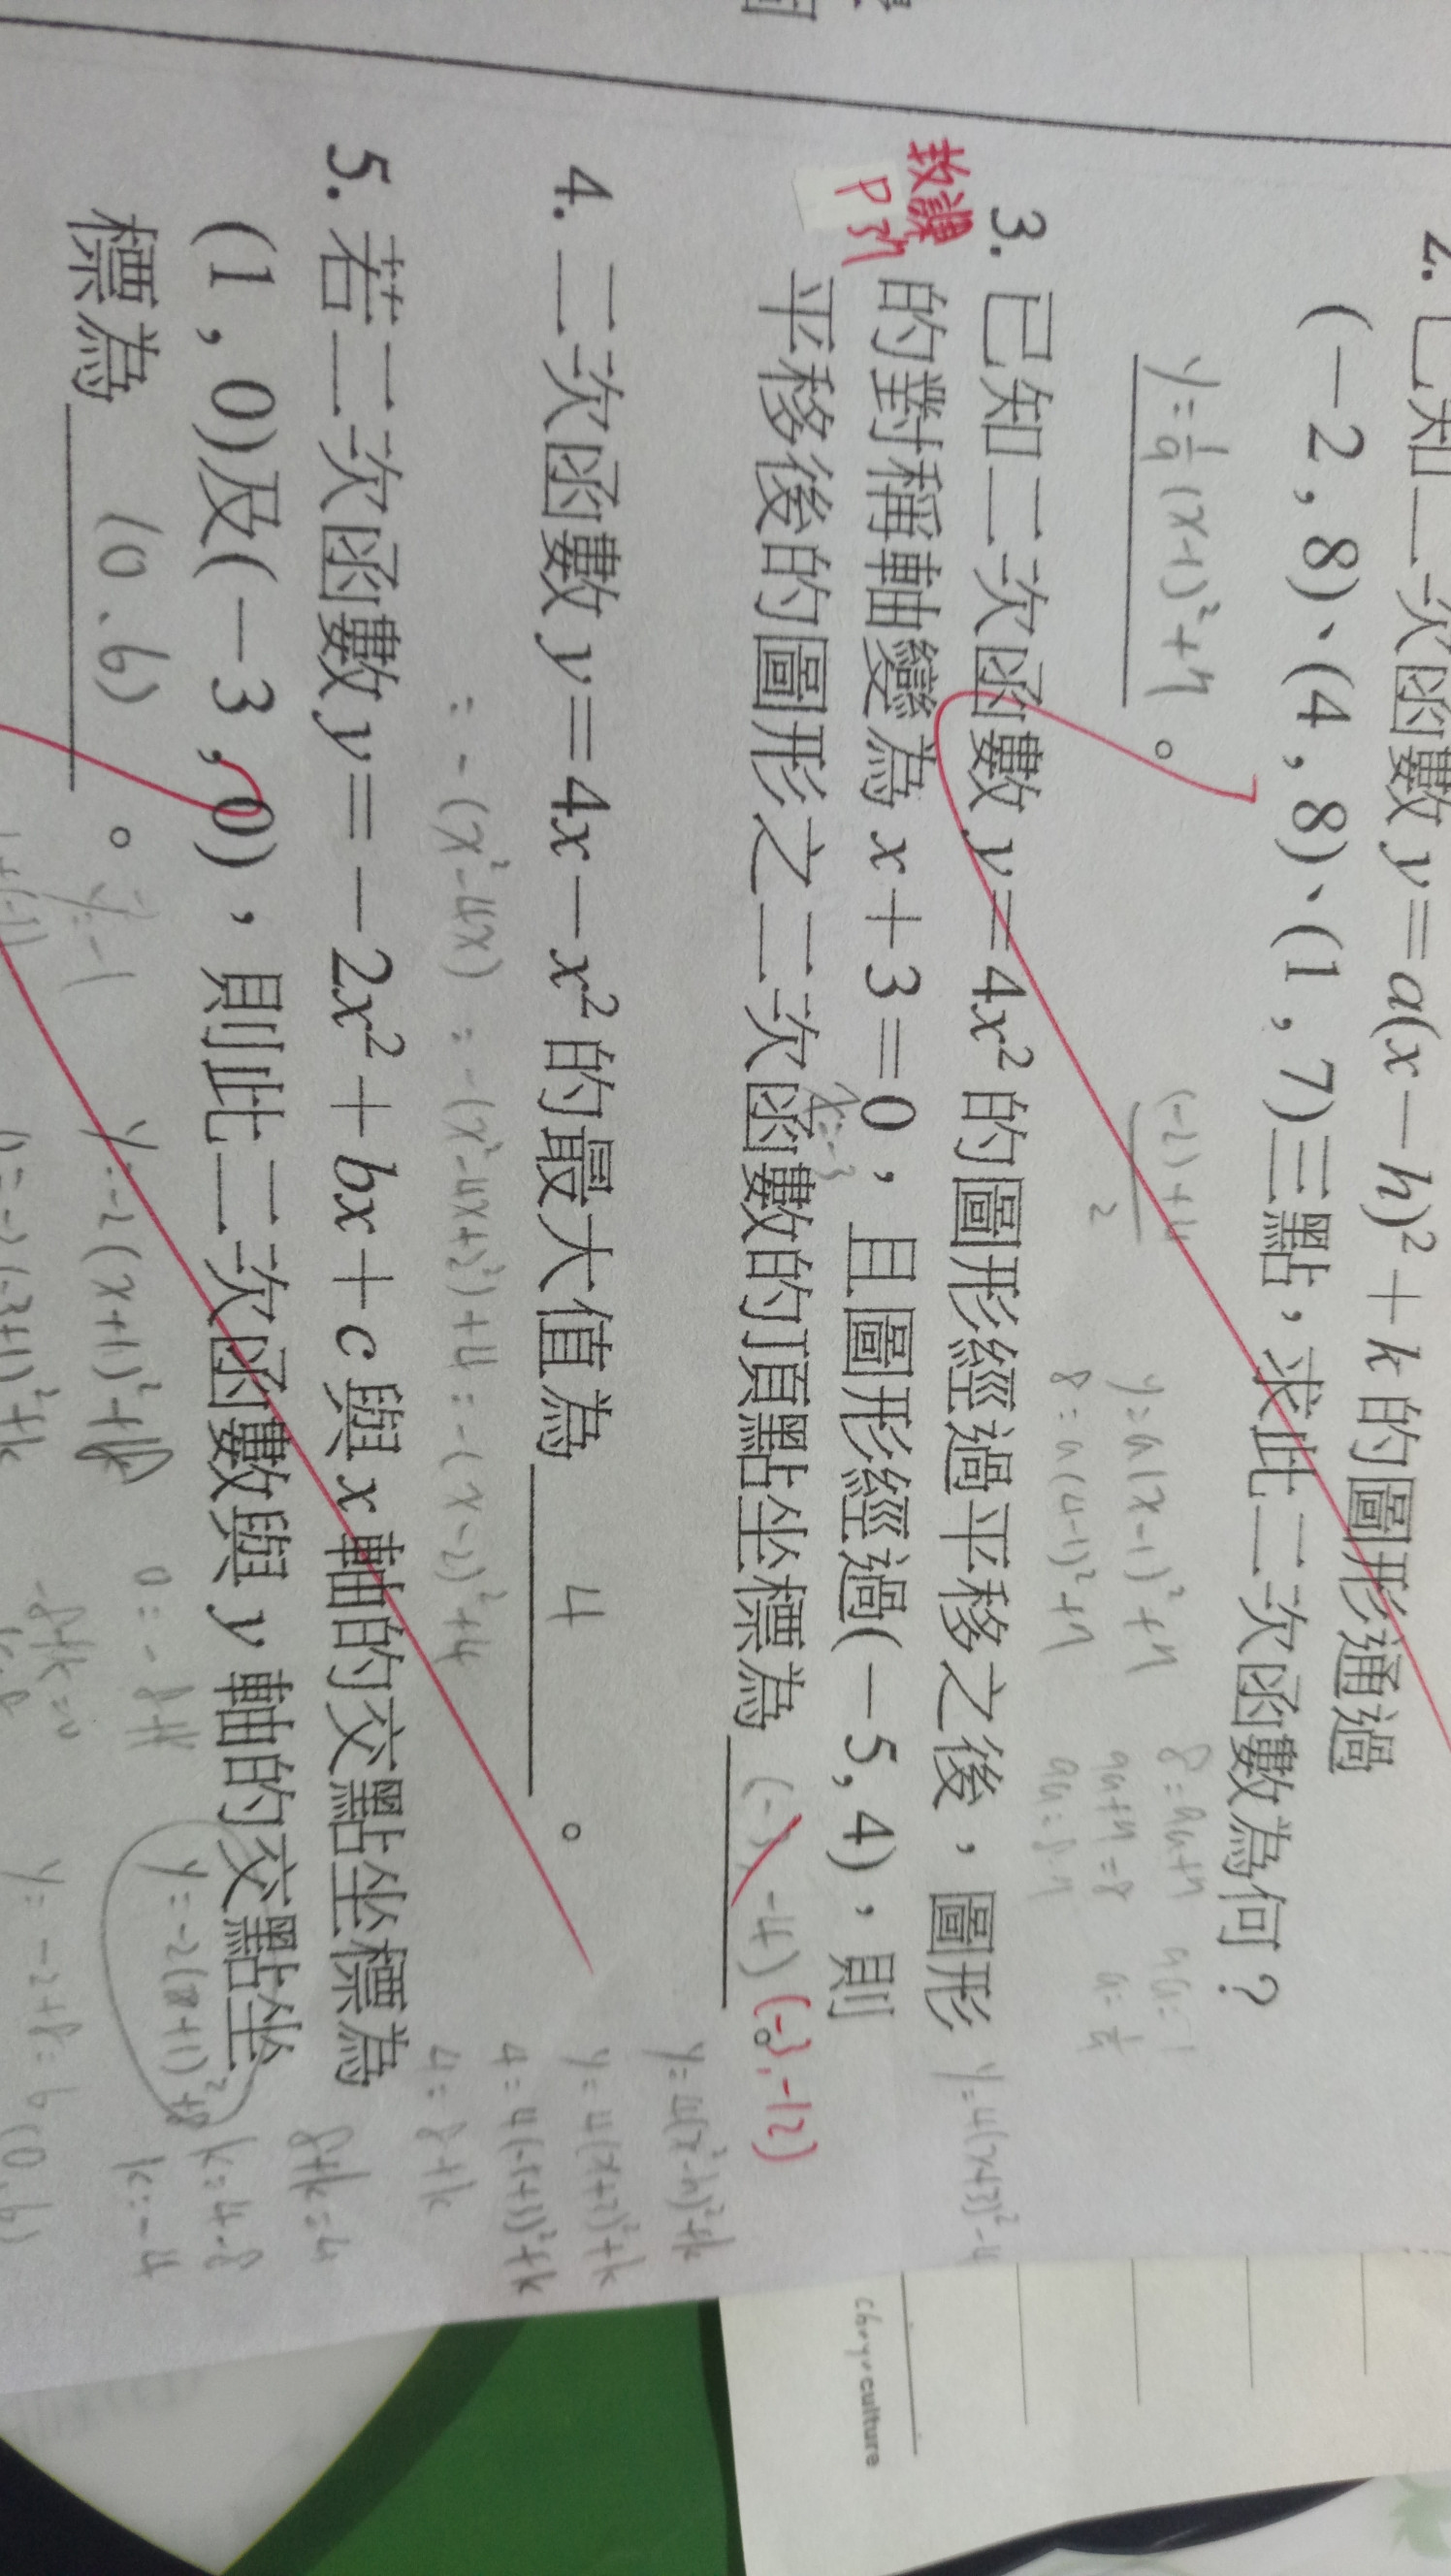 2. 已知二次函數 y=a(x-h)²+k 的圖形通過
(-2,8)、(4,8)、(1,7)三點,求此二次函數為何?
y=1/9(x-1)²+7 。
(-2)+4
2
y=a(x-1)²+7
8=a(4-1)²+7
8=9a+7
9a+7=8
9a=8-7
9a=1
a=1/9
3. 已知二次函數 y=4x² 的圖形經過平移之後,圖形
的對稱軸變為 x+3=0,且圖形經過(-5,4),則
平移後的圖形之二次函數的頂點坐標為 (-3,-4) 。
(-3,-12)
x=-3
y=4(x+3)²-4
y=4(x-h)²+k
y=4(x+3)²+k
4=4(-5+3)²+k
4=8+k
8+k=4
k=4-8
k=-4
4. 二次函數 y=4x-x² 的最大值為 4 。
=-(x²-4x) =-(x²-4x+2²)+4=-(x-2)²+4
5. 若二次函數 y=-2x²+bx+c 與 x 軸的交點坐標為
(1,0)及(-3,0),則此二次函數與 y 軸的交點坐
標為 (0、6) 。
y=-2(x+1)²+8
-8+k=0
y=-2+8=6